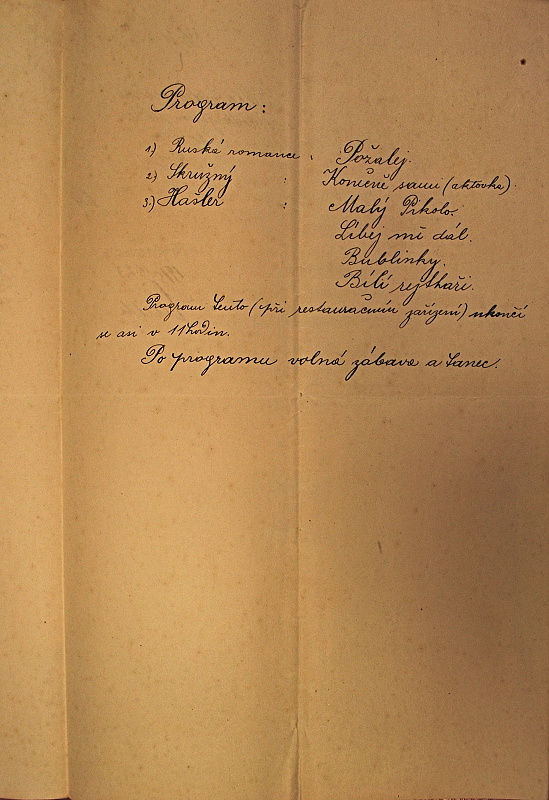 Program:
1) Ruská romance : Požalej.
2) Skružný : Konečně sami (aktovka).
3.) Hašler : Malý Pikolo.
Líbej mě dál.
Bublinky.
Bílí rejthaři.
Program tento (při restauračním zařízení) ukončí
se asi v 11 hodin.
Po programu volná zábava a tanec.